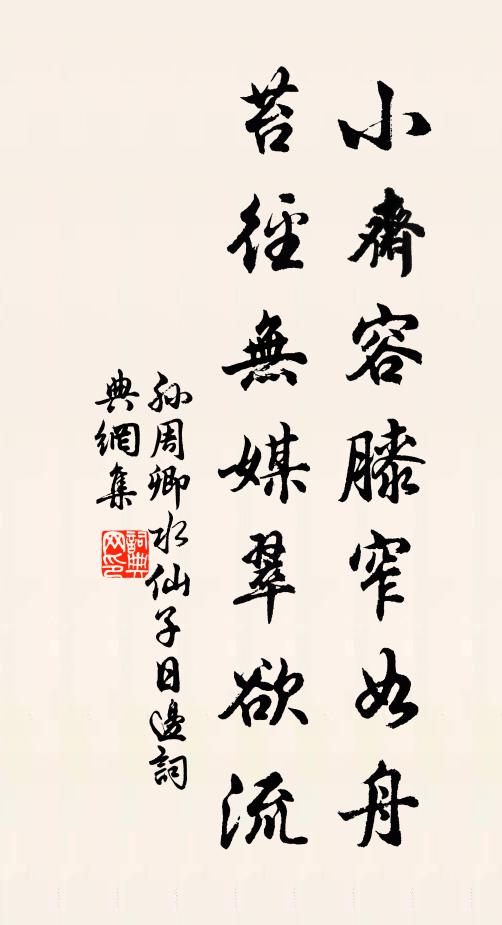 小齋容膝窄如舟
苔徑無媒翠欲流
孫周卿水仙子日邊詞
典網集
詞典
网印